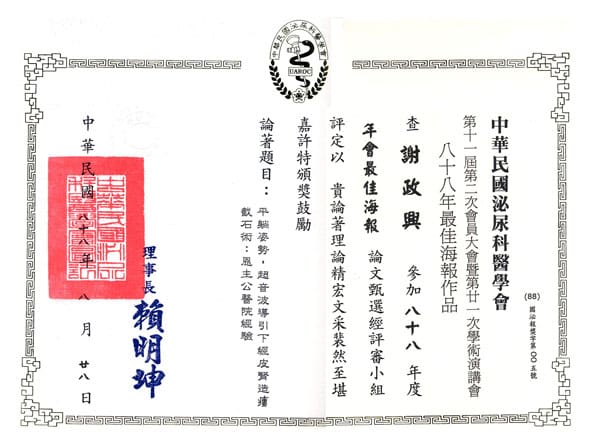 中華民國泌尿科醫學會
UAROC
(88) 國泌報獎字第〇〇五號
中華民國泌尿科醫學會
第十一屆第二次會員大會暨第廿一次學術演講會
八十八年最佳海報作品
查 謝政興 參加八十八年度
年會最佳海報 論文甄選經評審小組
評定以 貴論著理論精宏文采裴然至堪
嘉許特頒獎鼓勵
論著題目：平躺姿勢，超音波導引下經皮腎造廔
截石術：恩主公醫院經驗
理事長 賴明坤
中華民國八十八年八月廿八日